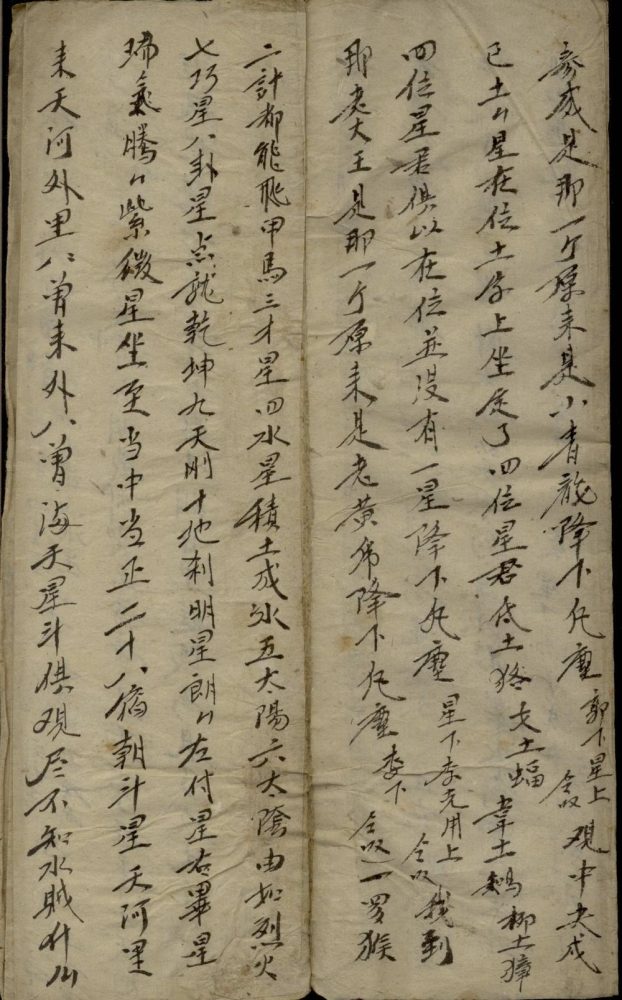 秦咸是那一个原来是小青龍降下凡塵郭下星上会叹观中央戊
己土〃星在位土字上坐定了四位星君氐土狢女土蝠韋土鷄柳土獐
四位星君俱以在位並沒有一星降下凡塵星下李元用上会叹我到
那老大王是那一个原来是老黃伟降下凡塵李下会叹一罗猴
二計都能飛甲馬三才星四水星積土成氷五太陽六太陰由如烈火
七巧星八卦星点就乾坤九天刚十地刹明星朗〃左付星右畢星
瑞氣騰〃紫微星坐至当中当正二十八宿朝斗星天河里
来天河外里八曾来外八曾海天星斗俱观尽不知水贼什么